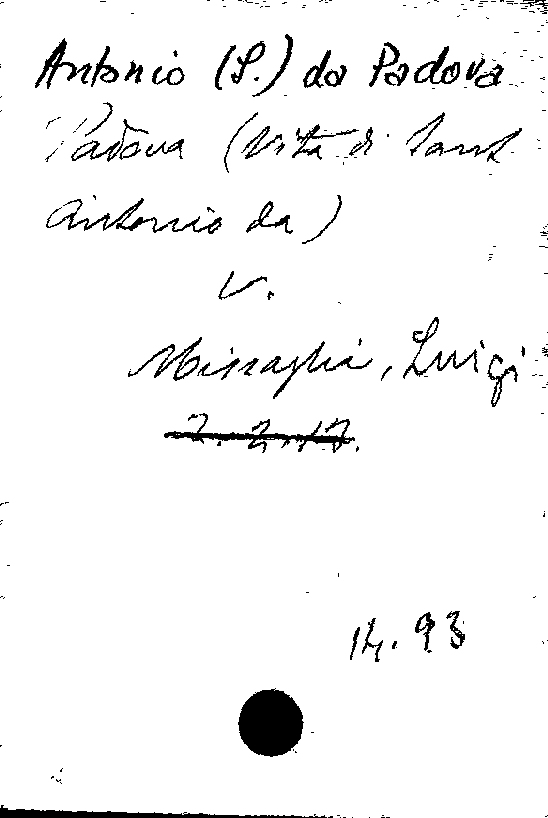 Antonio (S.) da Padova
Padova (Vita di Sant
Antonio da)
V.
Missaglia, Luigi
2. 2. 17.
14. 93